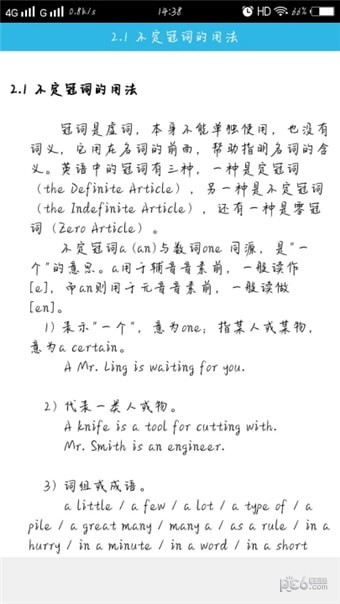 4G G 0.8k/s 14:38 HD 66%
2.1 不定冠词的用法
2.1 不定冠词的用法
冠词是虚词，本身不能单独使用，也没有
词义，它用在名词的前面，帮助指明名词的含
义。英语中的冠词有三种，一种是定冠词
（the Definite Article），另一种是不定冠词
（the Indefinite Article），还有一种是零冠
词（Zero Article）。
不定冠词a (an)与数词one 同源，是"一
个"的意思。a用于辅音音素前，一般读作
[e]，而an则用于元音音素前，一般读做
[en]。
1) 表示"一个"，意为one；指某人或某物，
意为a certain。
A Mr. Ling is waiting for you.
2) 代表一类人或物。
A knife is a tool for cutting with.
Mr. Smith is an engineer.
3) 词组或成语。
a little / a few / a lot / a type of / a
pile / a great many / many a / as a rule / in a
hurry / in a minute / in a word / in a short
pc6.com